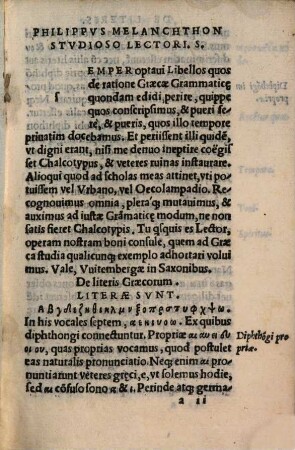 PHILIPPVS MELANCHTHON
STVDIOSO LECTORI. S.
SEMPER optaui Libellos quos
de ratione Græcæ Grammaticę
quondam edidi, perire, quippe
quos conscripsimus, & pueri fe
rè, & pueris, quos illo tempore
priuatim docebamus. Et periissent illi quidē,
vt digni erant, nisi me denuo ineptire coëgis
set Chalcotypus, & veteres ruinas instaurare.
Alioqui quod ad scholas meas attinet, vti po
tuissem vel Vrbano, vel Oecolampadio. Re
cognouimus omnia, pleraq; mutauimus, &
auximus ad iustæ Grāmaticę modum, ne non
satis fieret Chalcotypis. Tu qsquis es Lector,
operam nostram boni consule, quem ad Græ
ca studia qualicunq; exemplo adhortari volui
mus. Vale, Vuitembergæ in Saxonibus.
De literis Græcorum.
LITERÆ SVNT.
Αβγδεζηθικλμνξοπρστυφχψω.
In his vocales septem, αεηιουω. Ex quibus
diphthongi connectuntur. Propriæ αι αυ ει ευ
οι ου, quas proprias vocamus, quod postulet
eas naturalis pronunciatio. Neq; enim αι pro
nuntiarunt veteres gręci, e, vt solemus hodie,
sed αι cōfuso sono α & ι. Perinde atq; germa
a ii
Diphthōgi pro
priæ.